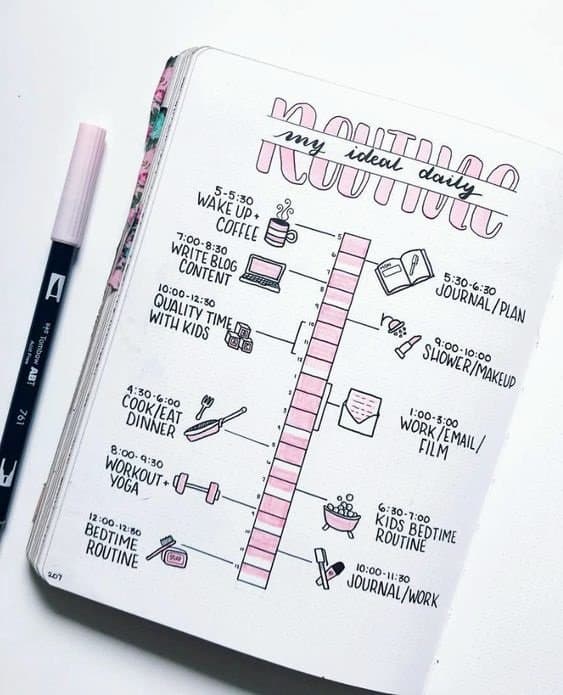 ROUTINE
my ideal daily
5-5:30
WAKE UP +
COFFEE
5:30-6:30
JOURNAL/PLAN
7:00-8:30
WRITE BLOG
CONTENT
9:00-10:00
SHOWER/MAKEUP
10:00-12:30
QUALITY TIME
WITH KIDS
1:00-3:00
WORK/EMAIL/
FILM
4:30-6:00
COOK/EAT
DINNER
6:30-7:00
KIDS BEDTIME
ROUTINE
8:00-9:30
WORKOUT +
YOGA
10:00-11:30
JOURNAL/WORK
12:00-12:30
BEDTIME
ROUTINE
5
6
7
8
9
10
11
12
1
2
3
4
5
6
7
8
9
10
11
12
207
Tombow ABT
761